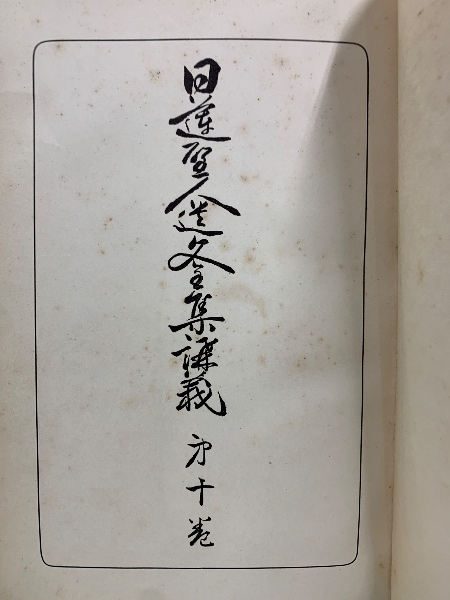 日蓮聖人遺文全集講義 第十巻